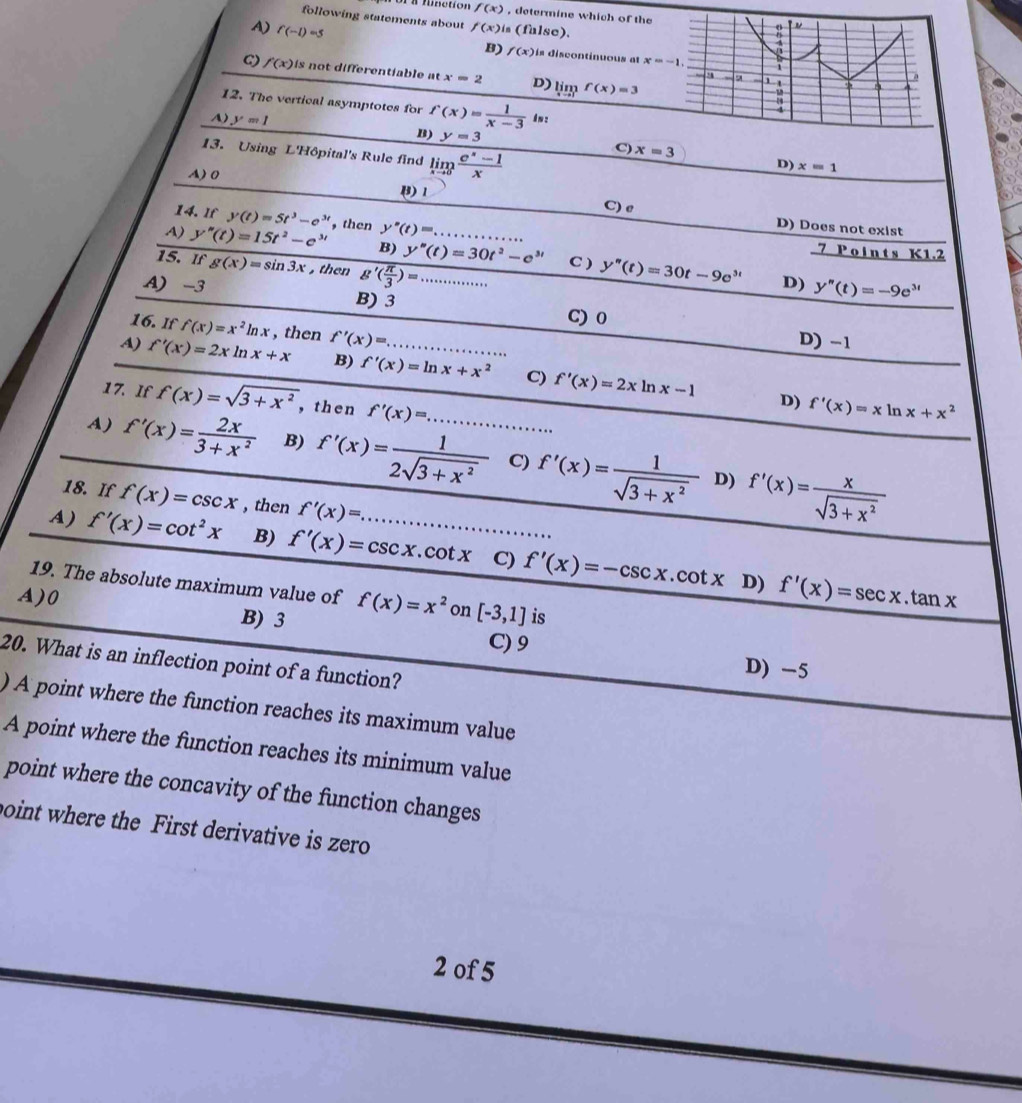 a function f(x), determine which of the
following statements about f(x) is (false).
A) f(-1)=5
B) f(x) is discontinuous at x = -1.
C) f(x) is not differentiable at x = 2
D) lim x→1 f(x) = 3
12. The vertical asymptotes for f(x) = 1/(x-3) is:
A) y = 1
B) y = 3
C) x = 3
D) x = 1
13. Using L'Hôpital's Rule find lim x→0 (e^x - 1)/x
A) 0
B) 1
C) e
D) Does not exist
7 Points K1.2
14. If y(t) = 5t³ - e^{3t}, then y"(t) = .............
A) y"(t) = 15t² - e^{3t} B) y"(t) = 30t² - e^{3t} C) y"(t) = 30t - 9e^{3t} D) y"(t) = -9e^{3t}
15. If g(x) = sin 3x, then g'(π/3) = ...............
A) -3
B) 3
C) 0
D) -1
16. If f(x) = x² ln x, then f'(x) = ...................
A) f'(x) = 2x ln x + x B) f'(x) = ln x + x² C) f'(x) = 2x ln x - 1 D) f'(x) = x ln x + x²
17. If f(x) = √(3 + x²), then f'(x) = ...................
A) f'(x) = 2x/(3 + x²) B) f'(x) = 1/(2√(3 + x²)) C) f'(x) = 1/√(3 + x²) D) f'(x) = x/√(3 + x²)
18. If f(x) = csc x, then f'(x) = .............................
A) f'(x) = cot² x B) f'(x) = csc x.cot x C) f'(x) = -csc x.cot x D) f'(x) = sec x.tan x
19. The absolute maximum value of f(x) = x² on [-3,1] is
A) 0
B) 3
C) 9
D) -5
20. What is an inflection point of a function?
) A point where the function reaches its maximum value
A point where the function reaches its minimum value
point where the concavity of the function changes
point where the First derivative is zero
2 of 5